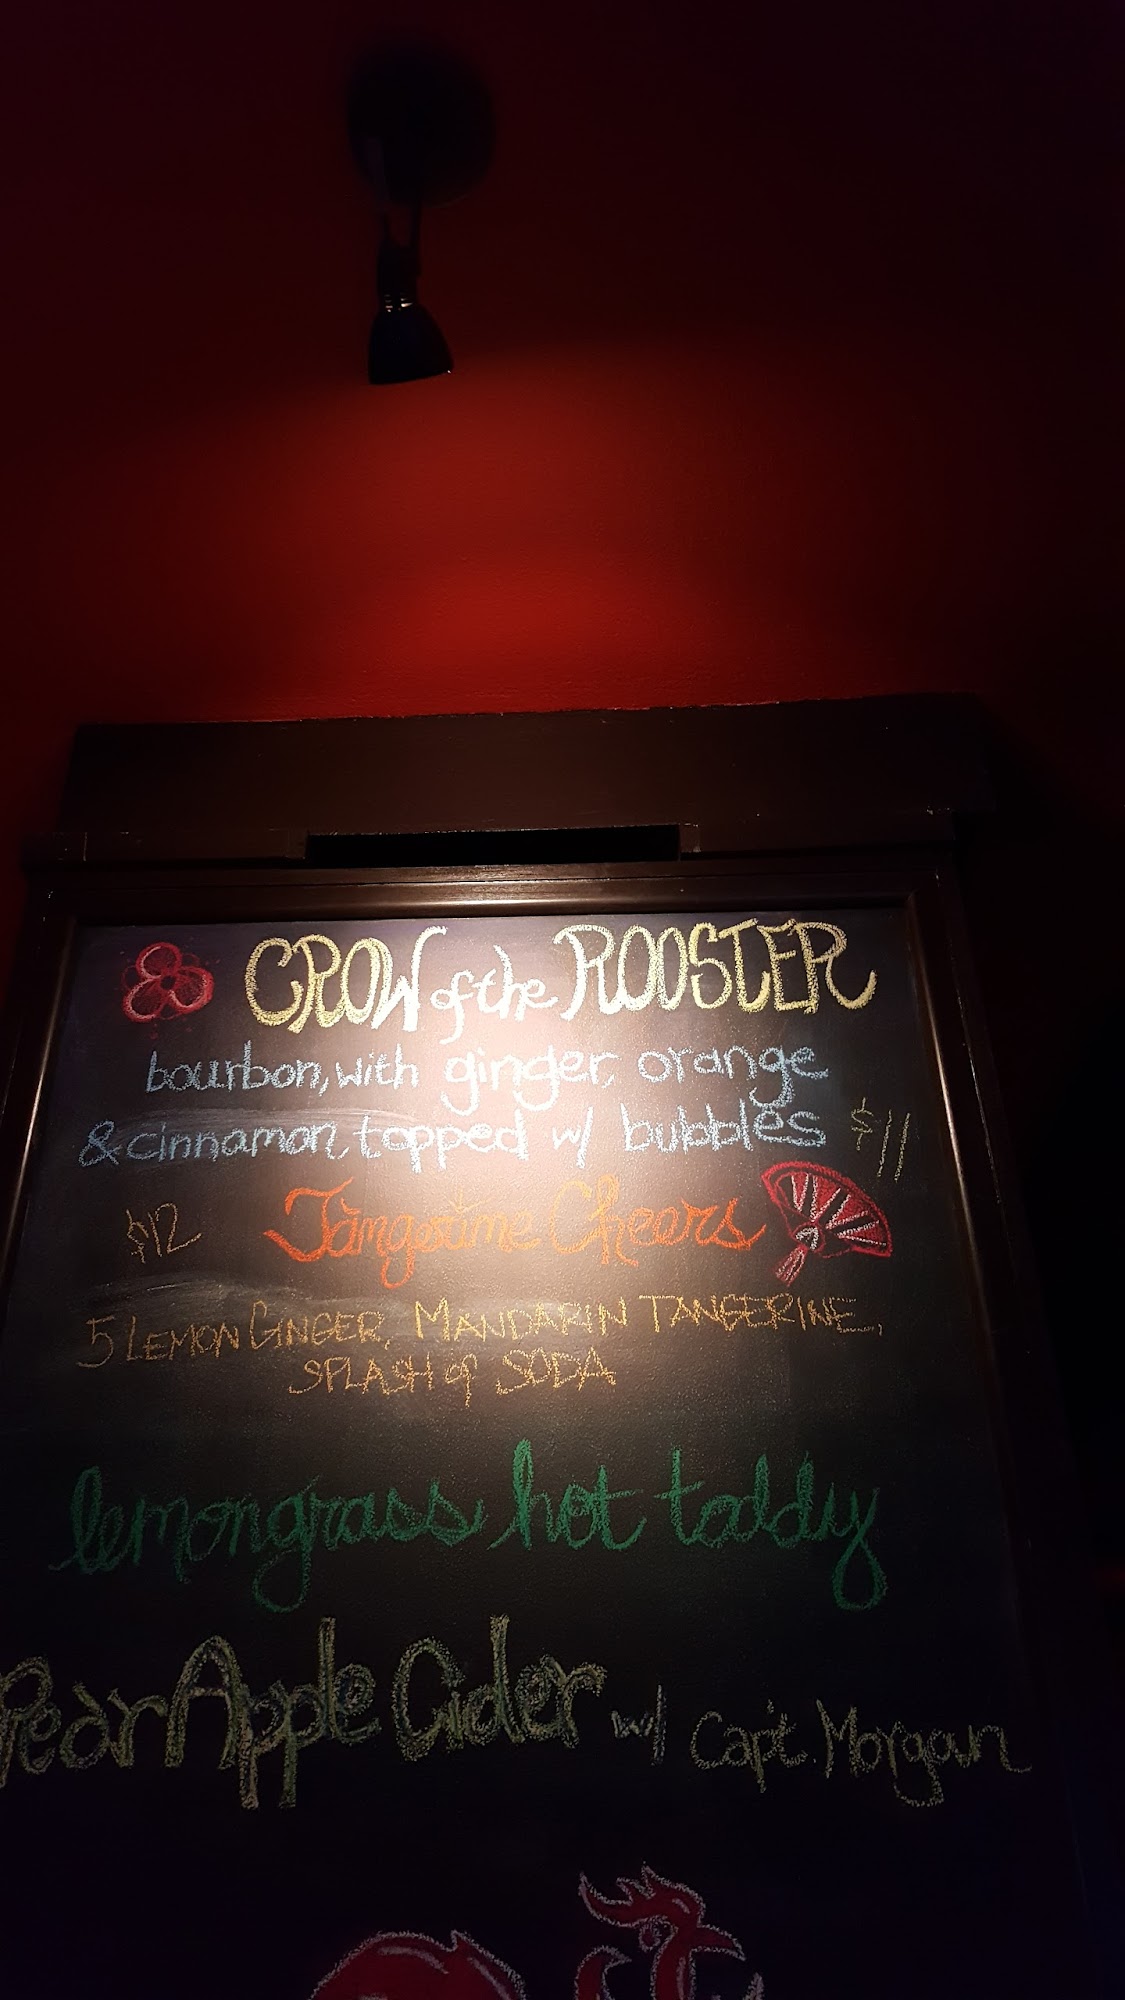 CROW of the ROOSTER
bourbon, with ginger, orange
& cinnamon topped w/ bubbles $11
$12 Cheers
5 LEMON GINGER, MANDARIN TANGERINE,
SPLASH of SODA
lemongrass hot toddy
Pear Apple Cider w/ Capt. Morgan